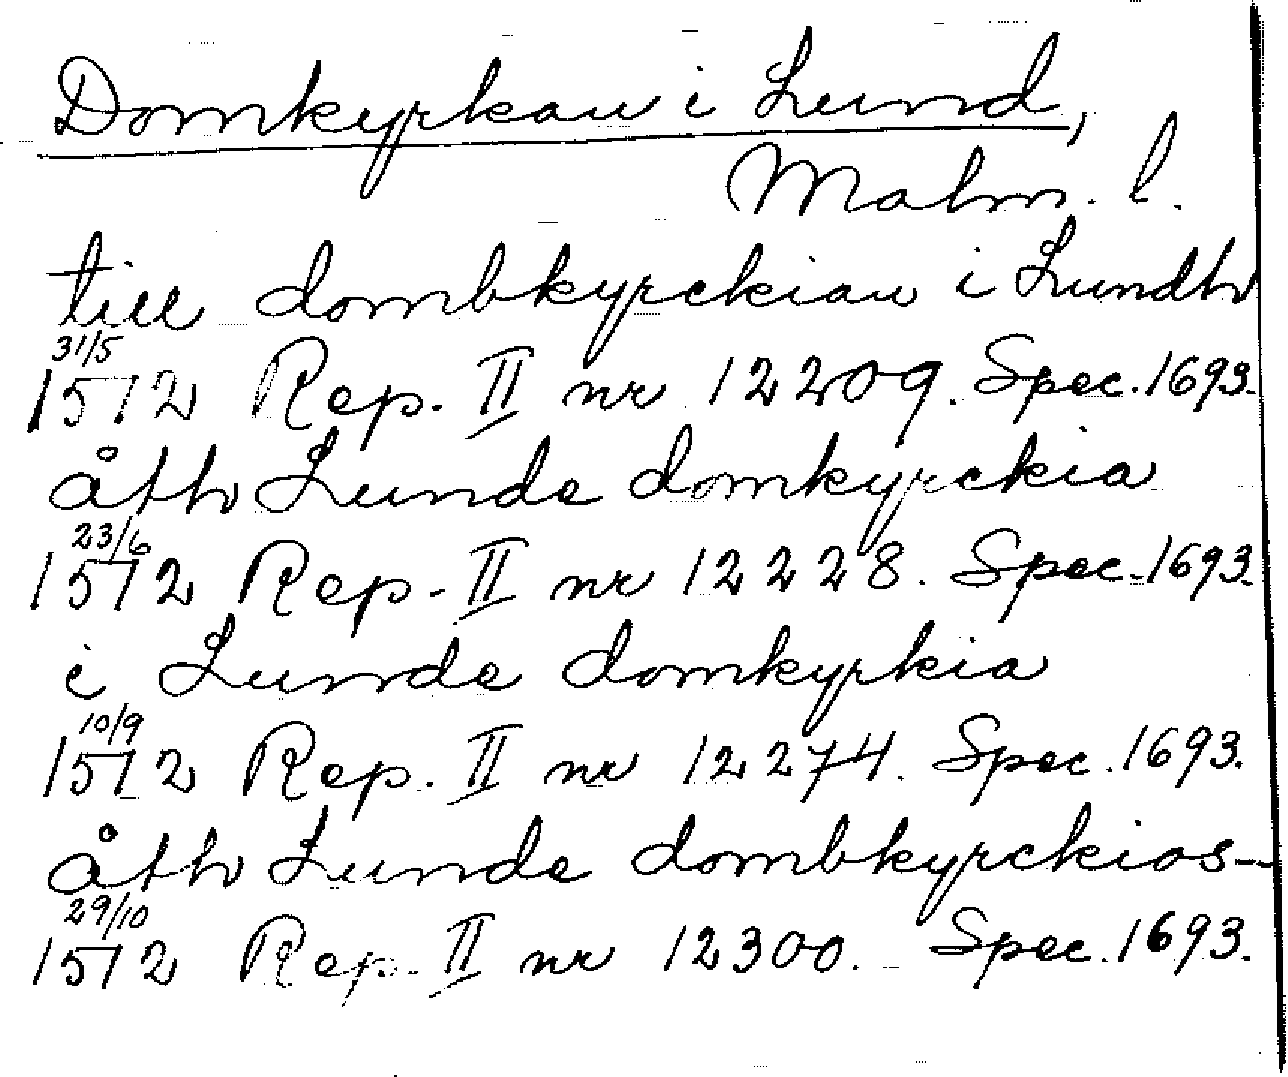 Domkyrkan i Lund,
Malm. l.
till dombkyrckian i Lundh
31/5
1512 Rep. II nr 12209. Spec. 1693.
åth Lunde domkyrckia
23/6
1512 Rep. II nr 12228. Spec. 1693.
i Lunde domkyrkia
10/9
1512 Rep. II nr 12274. Spec. 1693.
åth Lunde dombkyrckios-
29/10
1512 Rep. II nr 12300. Spec. 1693.